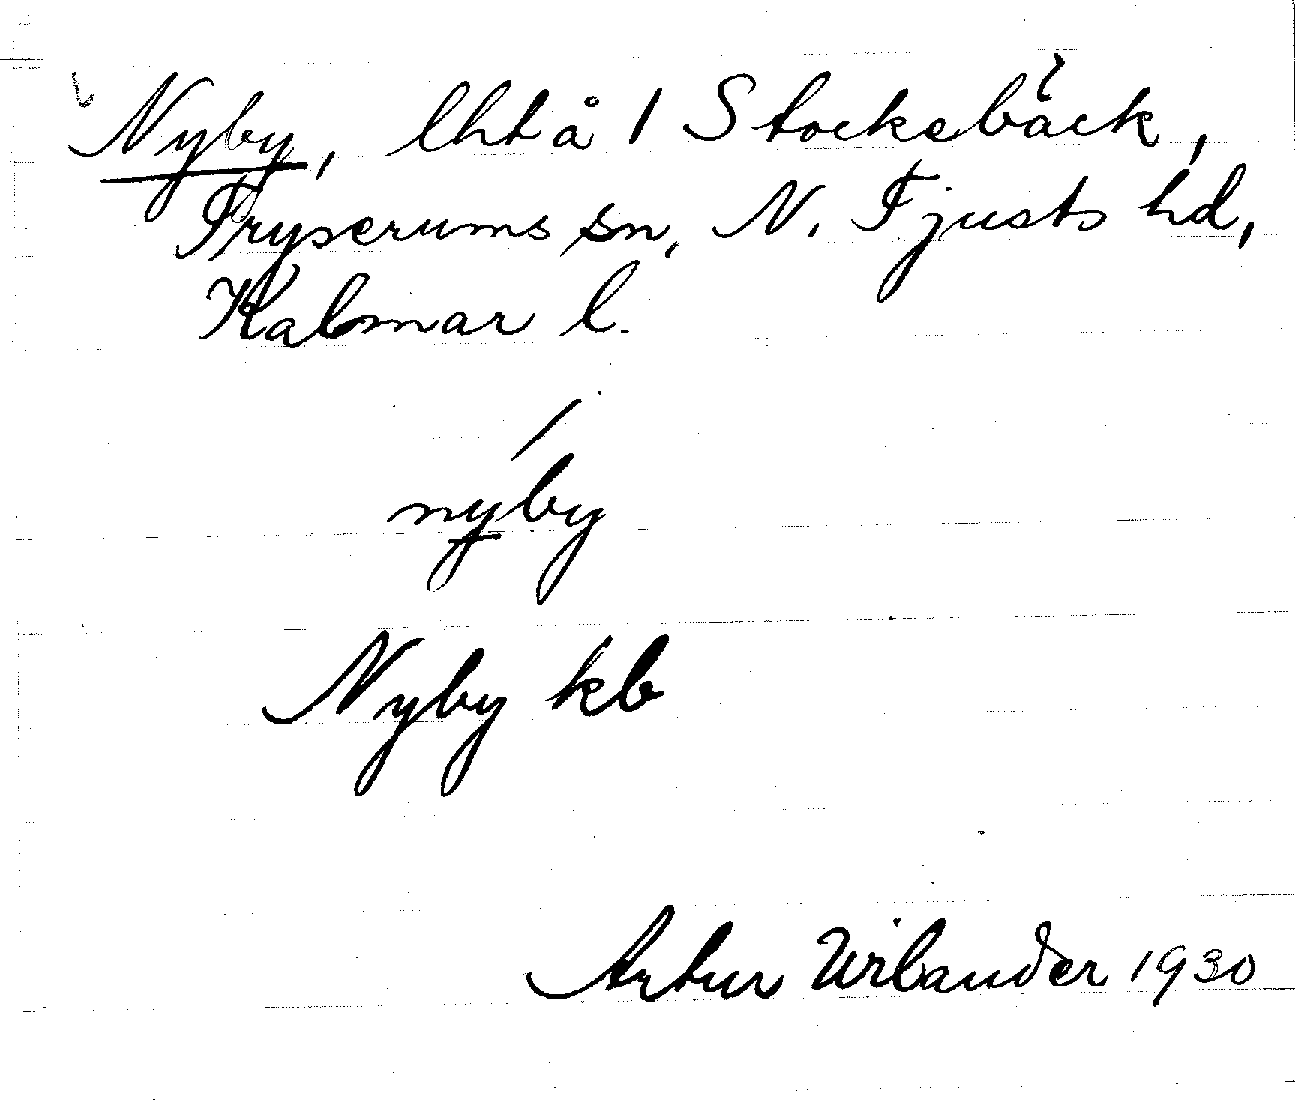 Nyby, lht å 1 Stockebäck,
Tryserums sn, N. Tjusts hd,
Kalmar l.
nyby
Nyby kb
Artur Wilander 1930